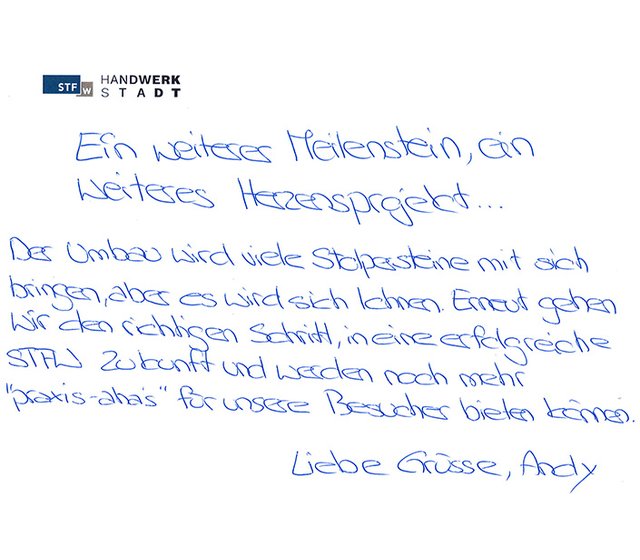 STFW HANDWERK
STADT
Ein weiterer Meilenstein, ein
weiteres Herzensprojekt...
Der Umbau wird viele Stolpersteine mit sich
bringen, aber es wird sich lohnen. Erneut gehen
wir den richtigen Schritt, in eine erfolgreiche
STFW Zukunft und werden noch mehr
"praxis-aha's" für unsere Besucher bieten können.
Liebe Grüsse, Andy